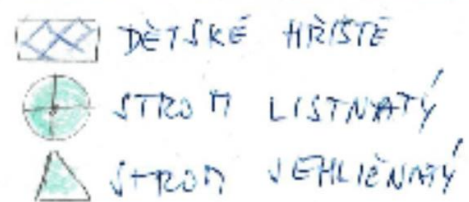 DĚTSKÉ HŘIŠTĚ
STROM LISTNATÝ
STROM JEHLIČNATÝ